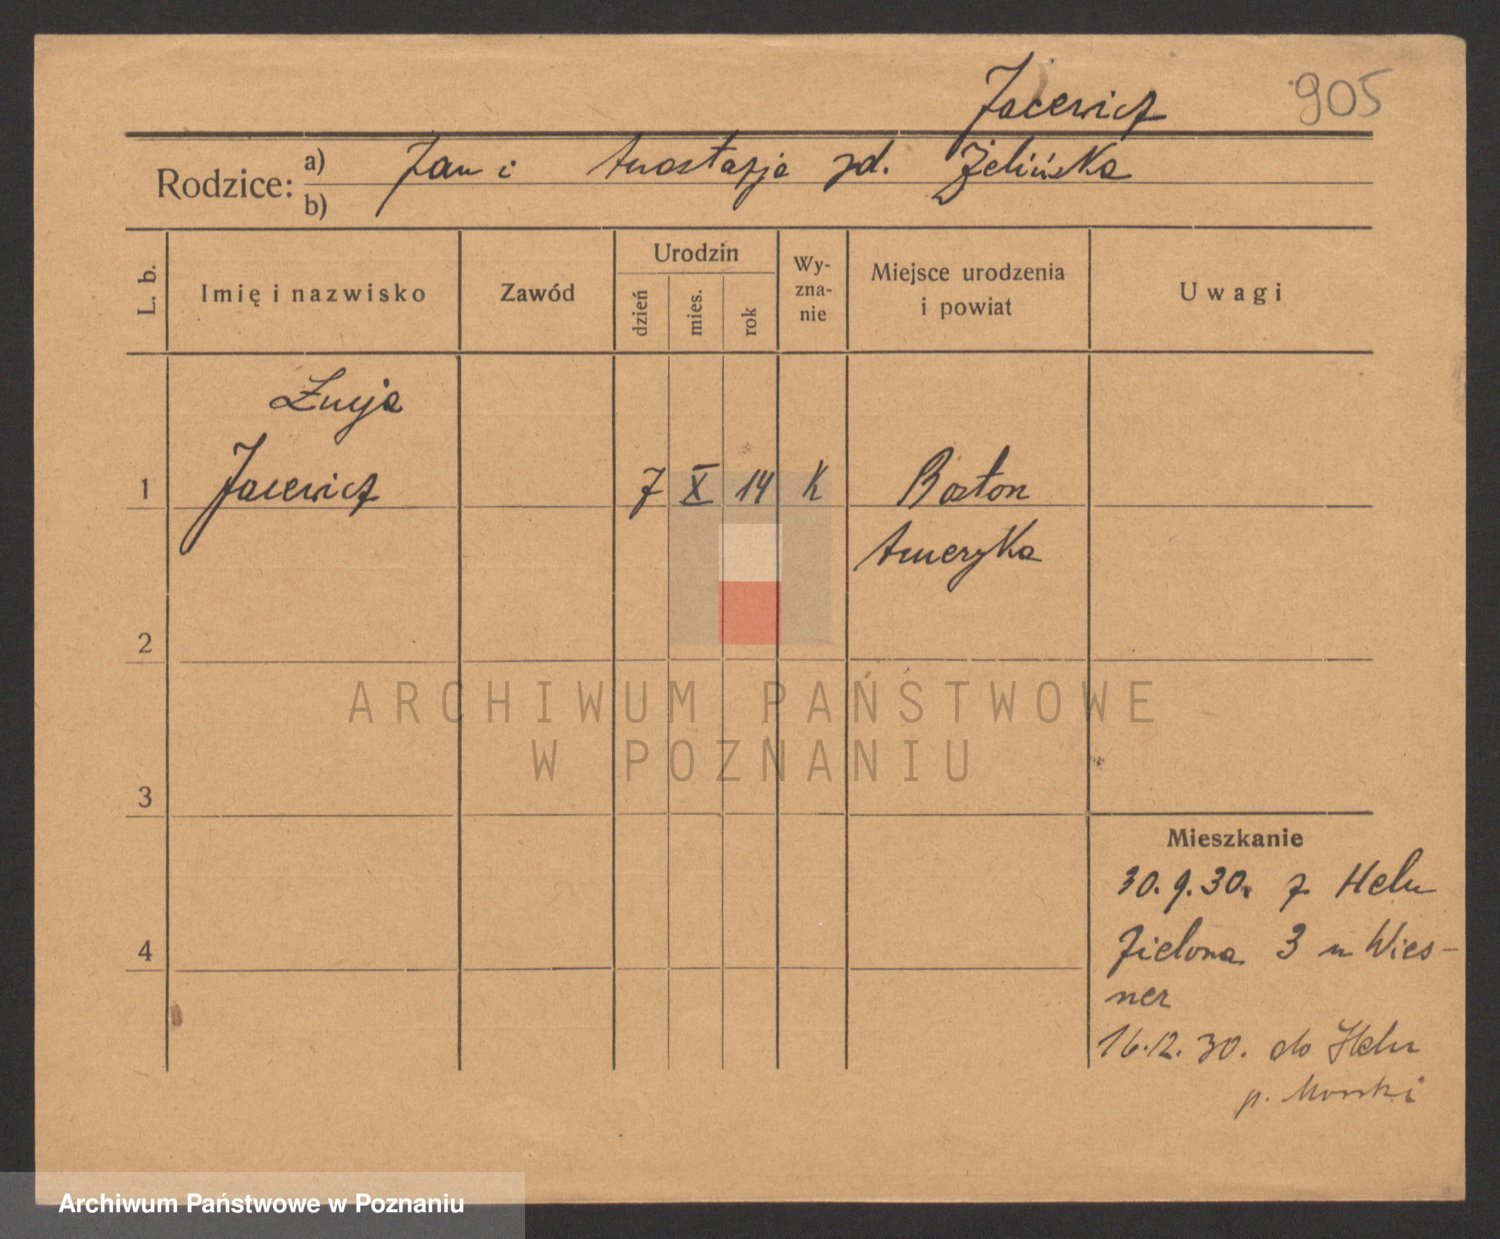 Jacewicz 905
Rodzice: a) Jan i Anastazja zd. Żelińska
b)
L. b.
Imię i nazwisko
Zawód
Urodzin
dzień
mies.
rok
Wy-
zna-
nie
Miejsce urodzenia
i powiat
Uwagi
Łucja
1 Jacewicz 7 X 14 K Boston
Ameryka
2
3
4
Mieszkanie
30.9.30. z Helu
Zielona 3 u Wies-
ner
16.12.30. do Helu
p. Morski
ARCHIWUM PAŃSTWOWE
W POZNANIU
Archiwum Państwowe w Poznaniu